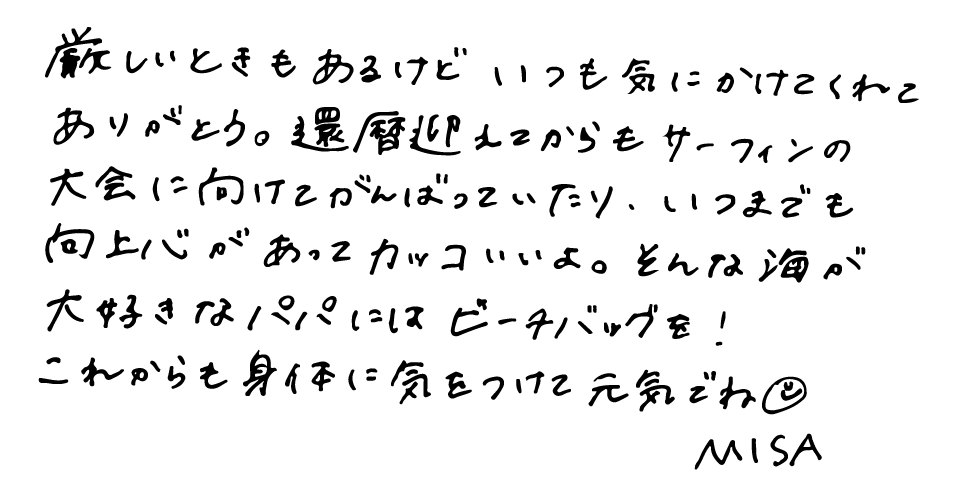 厳しいときもあるけど いつも気にかけてくれて
ありがとう。還暦迎えてからもサーフィンの
大会に向けてがんばっていたり、いつまでも
向上心があってカッコいいよ。そんな海が
大好きなパパにはビーチバッグを!
これからも身体に気をつけて元気でね☺
MISA